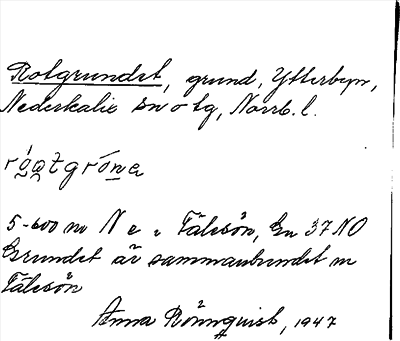 Rotgrundet, grund, Ytterbyn,
Nederkalix sn o tg, Norrb. l.
5-600 m N e Fälesön, Gu 37 NO
Grundet är sammanbundet m
Fälesön
Anna Rönnquist, 1947